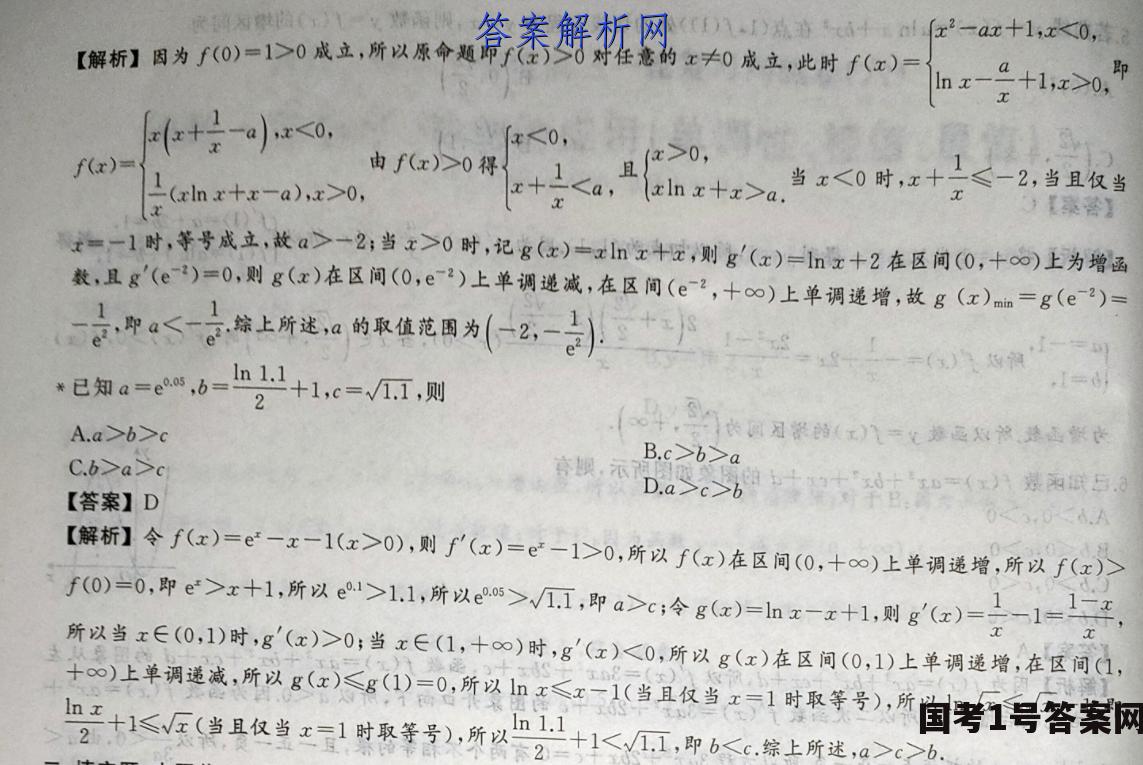 答案解析网
【解析】因为 f(0)=1>0 成立,所以原命题即 f(x)>0 对任意的 x≠0 成立,此时 f(x)={x²-ax+1,x<0, ln x-a/x+1,x>0, 即
f(x)={x(x+1/x-a),x<0, 1/x(xln x+x-a),x>0, 由 f(x)>0 得{x<0, x+1/x<a, 且{x>0, xln x+x>a. 当 x<0 时,x+1/x≤-2,当且仅当
x=-1 时,等号成立,故 a>-2;当 x>0 时,记 g(x)=xln x+x,则 g′(x)=ln x+2 在区间(0,+∞)上为增函
数,且 g′(e⁻²)=0,则 g(x)在区间(0,e⁻²)上单调递减,在区间(e⁻²,+∞)上单调递增,故 g (x)min=g(e⁻²)=
-1/e²,即 a<-1/e².综上所述,a 的取值范围为(-2,-1/e²).
*已知 a=e^0.05,b=ln 1.1/2+1,c=√1.1,则
A.a>b>c
B.c>b>a
C.b>a>c
D.a>c>b
【答案】D
【解析】令 f(x)=eˣ-x-1(x>0),则 f′(x)=eˣ-1>0,所以 f(x)在区间(0,+∞)上单调递增,所以 f(x)>
f(0)=0,即 eˣ>x+1,所以 e^0.1>1.1,所以e^0.05>√1.1,即 a>c;令 g(x)=ln x-x+1,则 g′(x)=1/x-1=1-x/x,
所以当 x∈(0,1)时,g′(x)>0;当 x∈(1,+∞)时,g′(x)<0,所以 g(x)在区间(0,1)上单调递增,在区间(1,
+∞)上单调递减,所以 g(x)≤g(1)=0,所以 ln x≤x-1(当且仅当 x=1 时取等号),所
ln x/2+1≤√x(当且仅当 x=1 时取等号),所以ln 1.1/2+1<√1.1,即 b<c.综上所述,a>c>b.
国考1号答案网